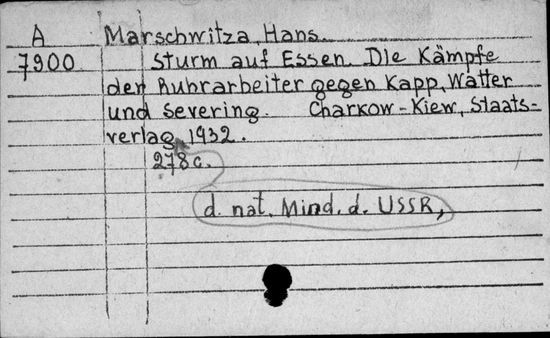 A Marschwitza, Hans.
7900 Sturm auf Essen. Die Kämpfe
der Ruhrarbeiter gegen Kapp, Watter
und Severing. Charkow-Kiew, Staats-
verlag, 1932.
278 c.
d. nat. Mind. d. USSR,